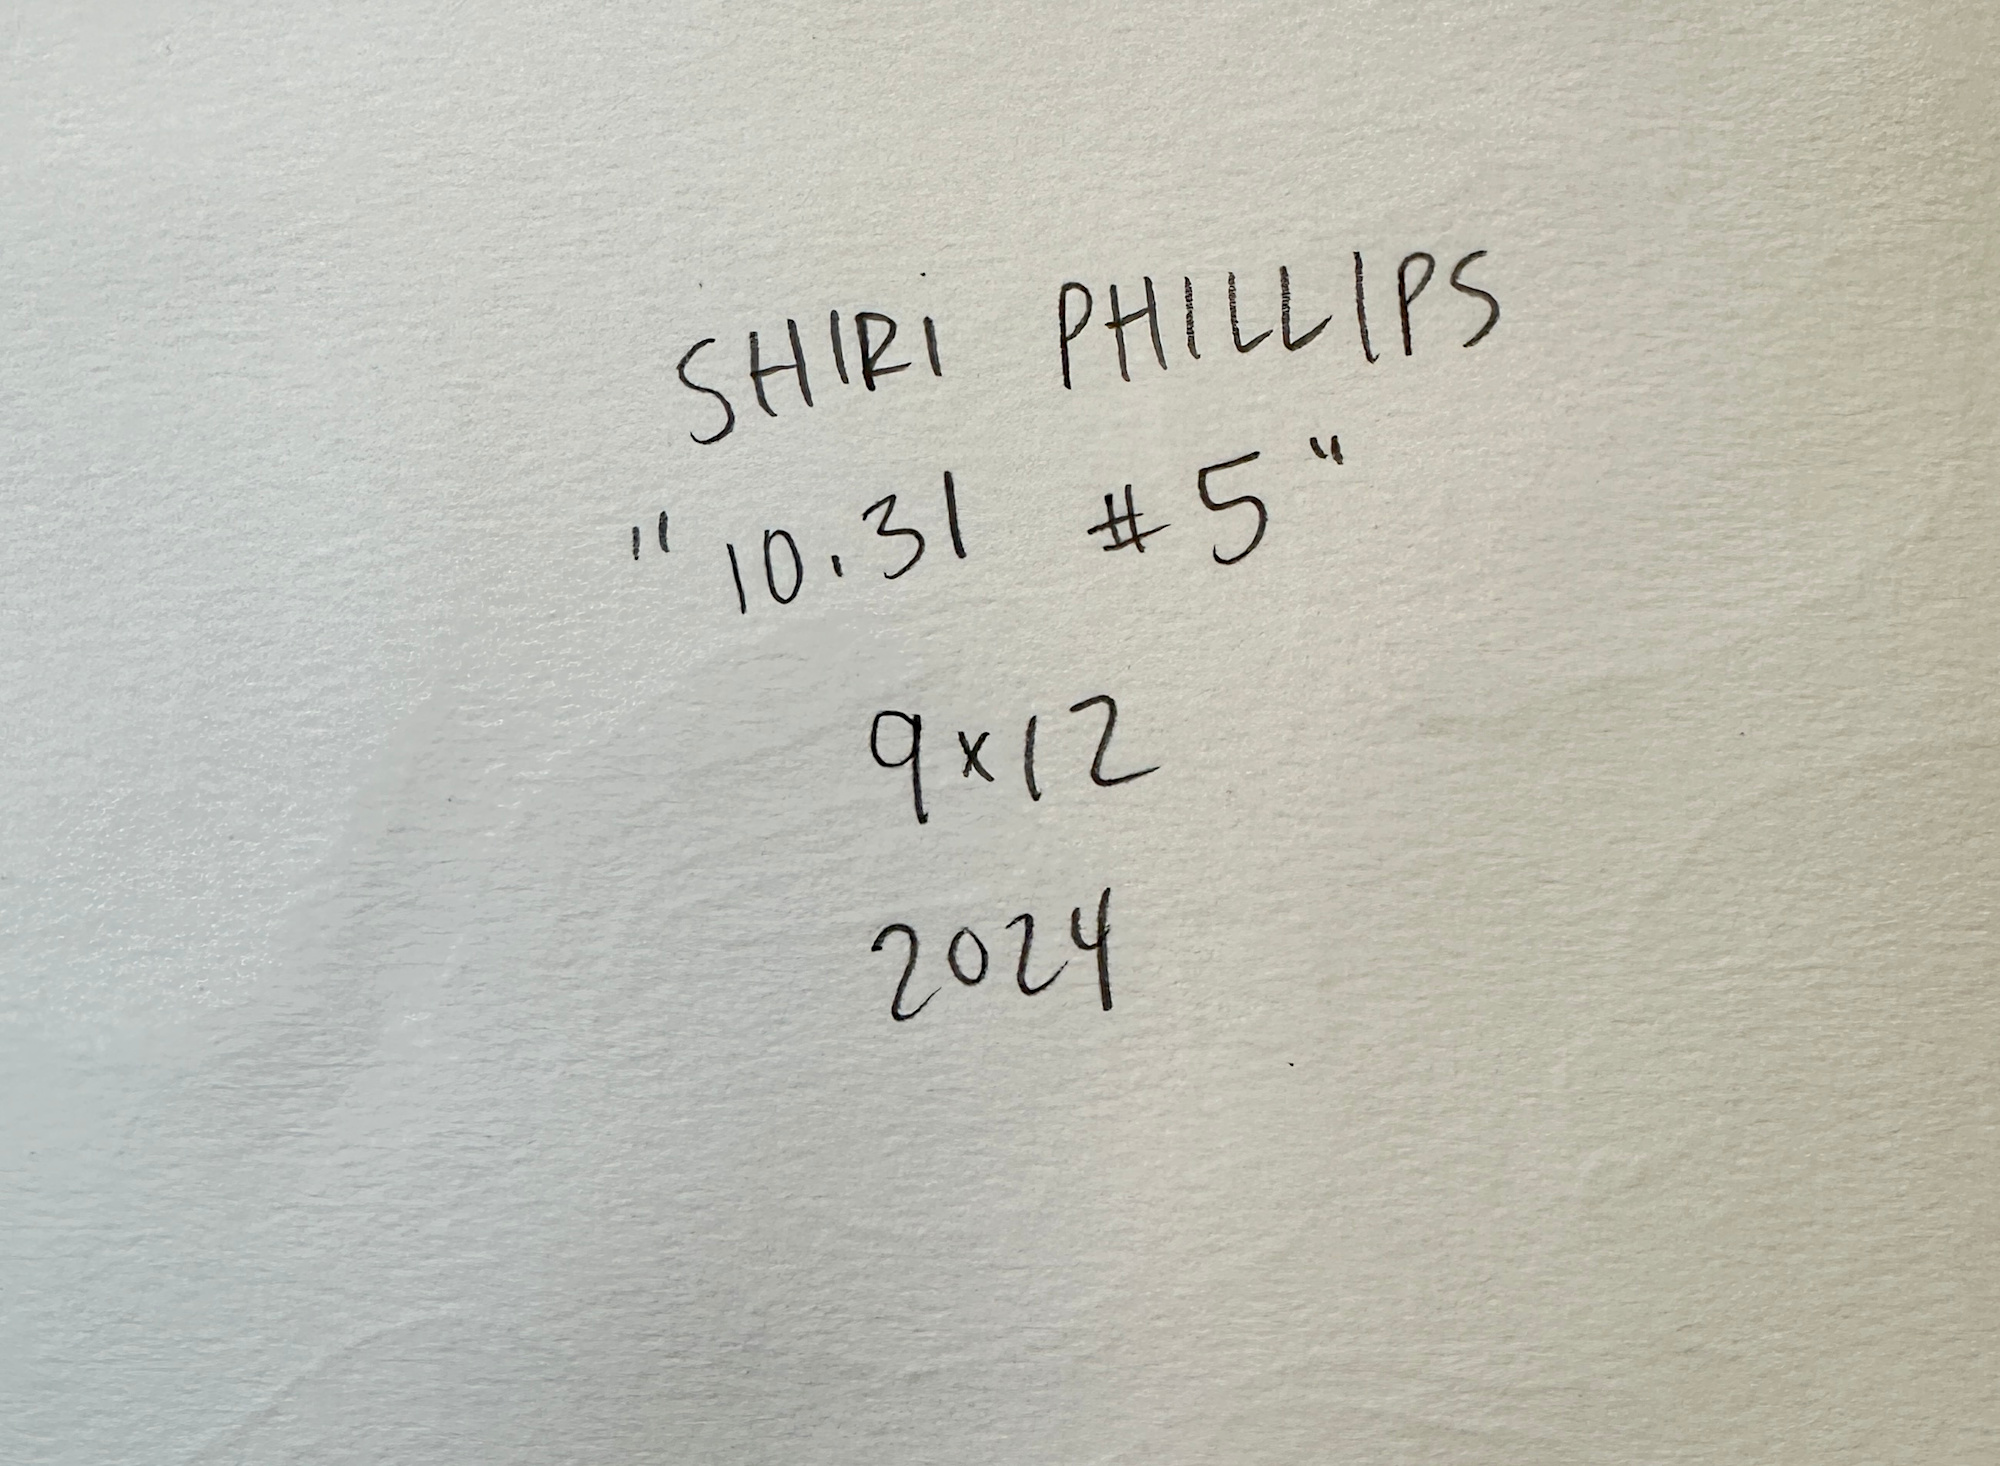 SHIRi PHILLIPS
"10.31 #5"
9x12
2024